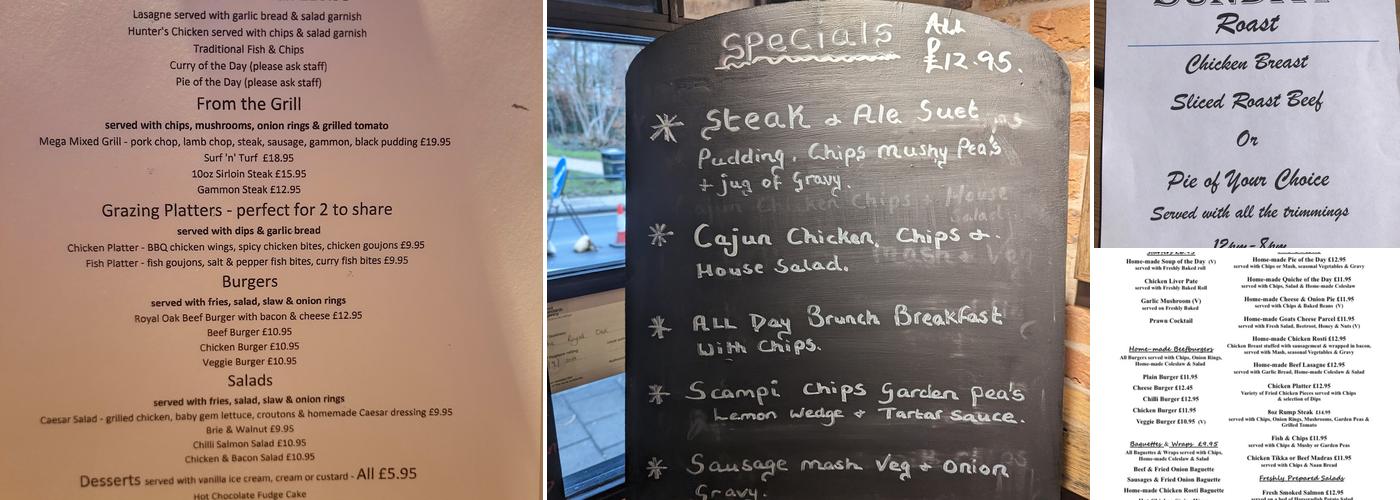 Lasagne served with garlic bread & salad garnish
Hunter's Chicken served with chips & salad garnish
Traditional Fish & Chips
Curry of the Day (please ask staff)
Pie of the Day (please ask staff)
From the Grill
served with chips, mushrooms, onion rings & grilled tomato
Mega Mixed Grill - pork chop, lamb chop, steak, sausage, gammon, black pudding £19.95
Surf 'n' Turf £18.95
10oz Sirloin Steak £15.95
Gammon Steak £12.95
Grazing Platters - perfect for 2 to share
served with dips & garlic bread
Chicken Platter - BBQ chicken wings, spicy chicken bites, chicken goujons £9.95
Fish Platter - fish goujons, salt & pepper fish bites, curry fish bites £9.95
Burgers
served with fries, salad, slaw & onion rings
Royal Oak Beef Burger with bacon & cheese £12.95
Beef Burger £10.95
Chicken Burger £10.95
Veggie Burger £10.95
Salads
served with fries, salad, slaw & onion rings
Caesar Salad - grilled chicken, baby gem lettuce, croutons & homemade Caesar dressing £9.95
Brie & Walnut £9.95
Chilli Salmon Salad £10.95
Chicken & Bacon Salad £10.95
Desserts served with vanilla ice cream, cream or custard - All £5.95
Hot Chocolate Fudge Cake
Specials All
£12.95.
Steak & Ale Suet
Pudding. Chips mushy Pea's
+ jug of Gravy.
Cajun Chicken, Chips &
House Salad.
ALL Day Brunch Breakfast
With Chips.
Scampi Chips Garden Pea's
Lemon Wedge + Tartar Sauce.
Sausage mash Veg + Onion
Gravy.
SUNDAY
Roast
Chicken Breast
Sliced Roast Beef
Or
Pie of Your Choice
Served with all the trimmings
12pm-8pm
Home-made Soup of the Day (V)
served with Freshly Baked roll
Chicken Liver Pate
served with Freshly Baked Roll
Garlic Mushroom (V)
served on Freshly Baked
Prawn Cocktail
Home-made Beefburgers
All Burgers served with Chips, Onion Rings,
Home-made Coleslaw & Salad
Plain Burger £11.95
Cheese Burger £12.45
Chilli Burger £12.95
Chicken Burger £11.95
Veggie Burger £10.95 (V)
Baguettes & Wraps £9.95
All Baguettes & Wraps served with Chips,
Home-made Coleslaw & Salad
Beef & Fried Onion Baguette
Sausages & Fried Onion Baguette
Home-made Chicken Rosti Baguette
Home-made Pie of the Day £12.95
served with Chips or Mash, seasonal Vegetables & Gravy
Home-made Quiche of the Day £11.95
served with Chips, Salad & Home-made Coleslaw
Home-made Cheese & Onion Pie £11.95
served with Chips & Baked Beans (V)
Home-made Goats Cheese Parcel £11.95
served with Fresh Salad, Beetroot, Honey & Nuts (V)
Home-made Chicken Rosti £12.95
Chicken Breast stuffed with sausagement & wrapped in bacon,
served with Mash, seasonal Vegetables & Gravy
Home-made Beef Lasagne £12.95
served with Garlic Bread, Home-made Coleslaw & Salad
Chicken Platter £12.95
Variety of Fried Chicken Pieces served with Chips
& selection of Dips
8oz Rump Steak £14.95
served with Chips, Onion Rings, Mushrooms, Garden Peas &
Grilled Tomato
Fish & Chips £11.95
served with Chips & Mushy or Garden Peas
Chicken Tikka or Beef Madras £11.95
served with Chips & Naan Bread
Freshly Prepared Salads
Fresh Smoked Salmon £12.95